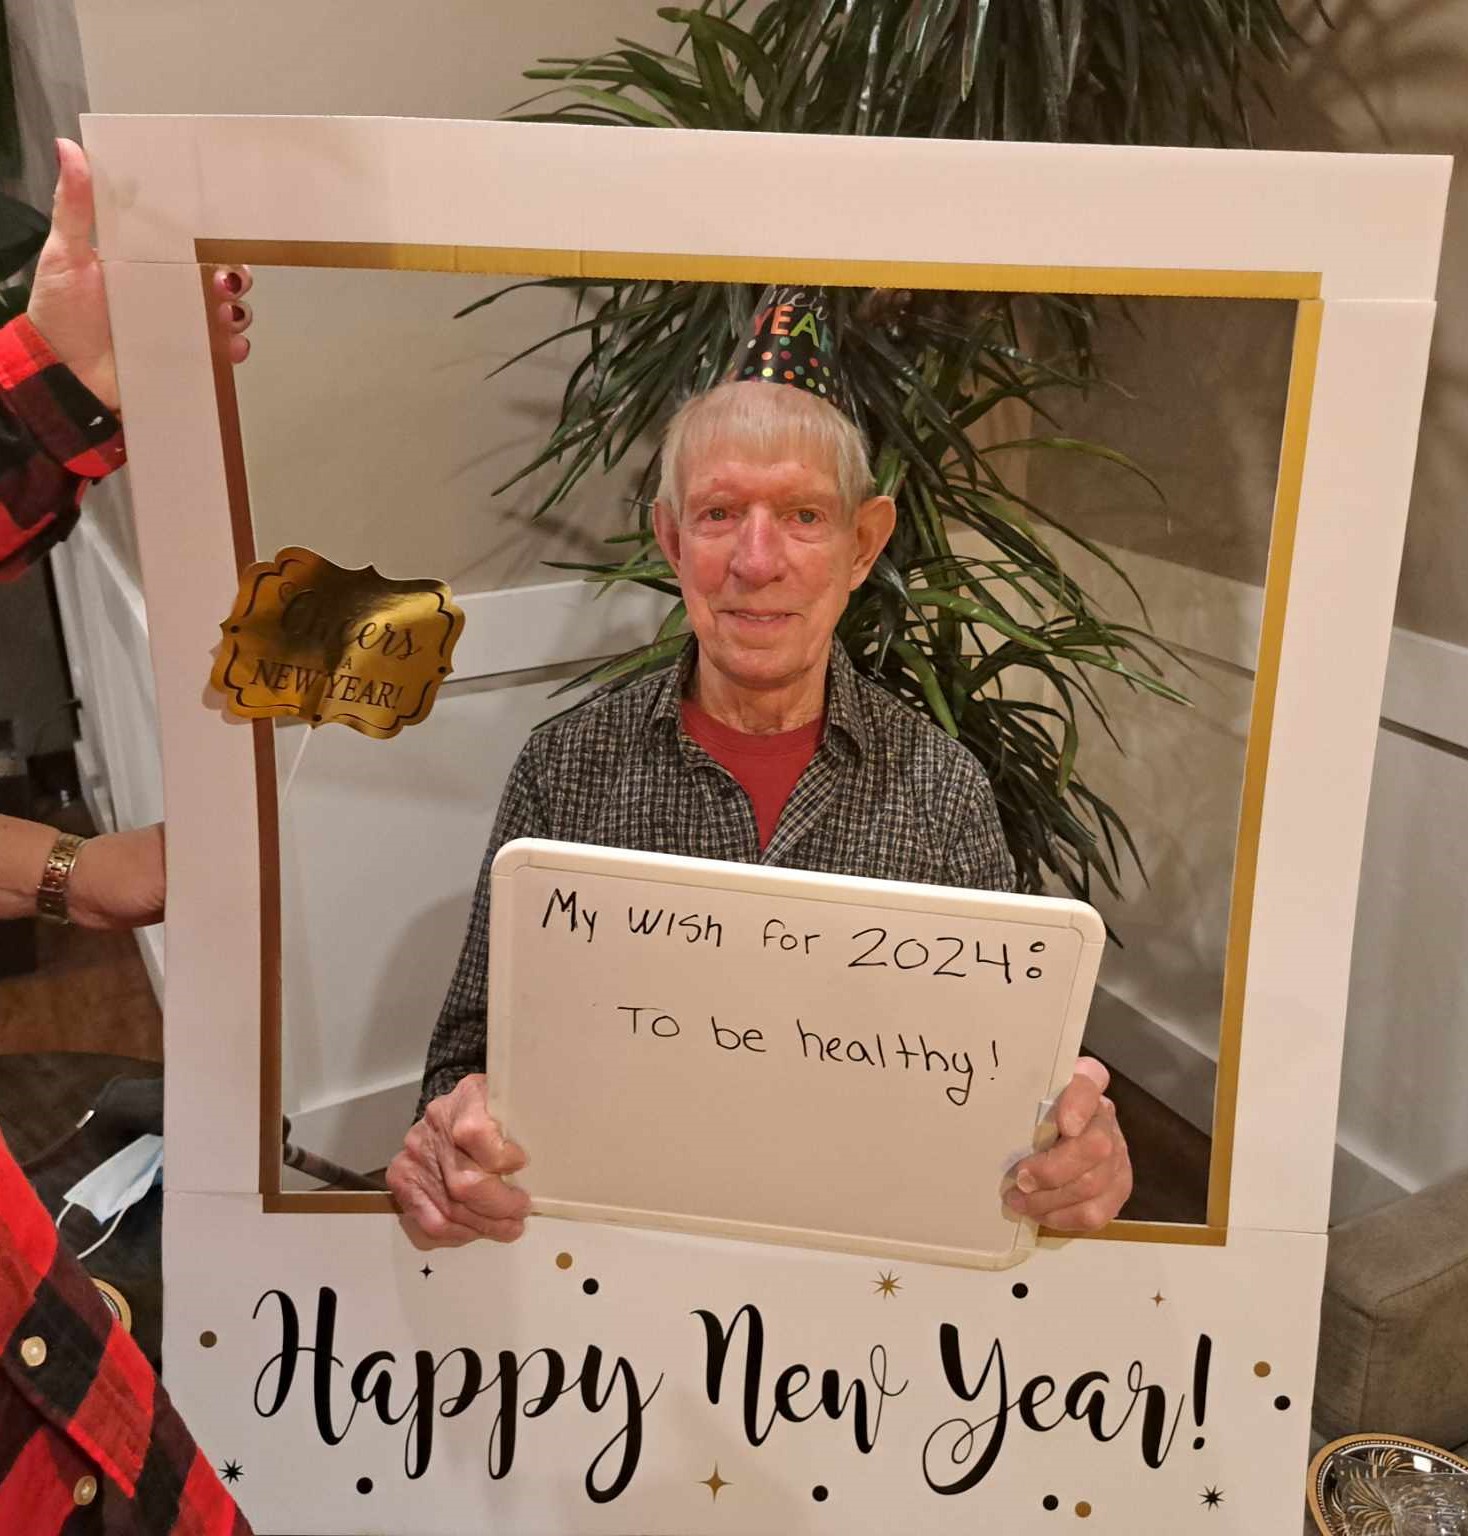 new
YEA
Cheers
A
NEW YEAR!
My wish for 2024:
To be healthy!
Happy New Year!